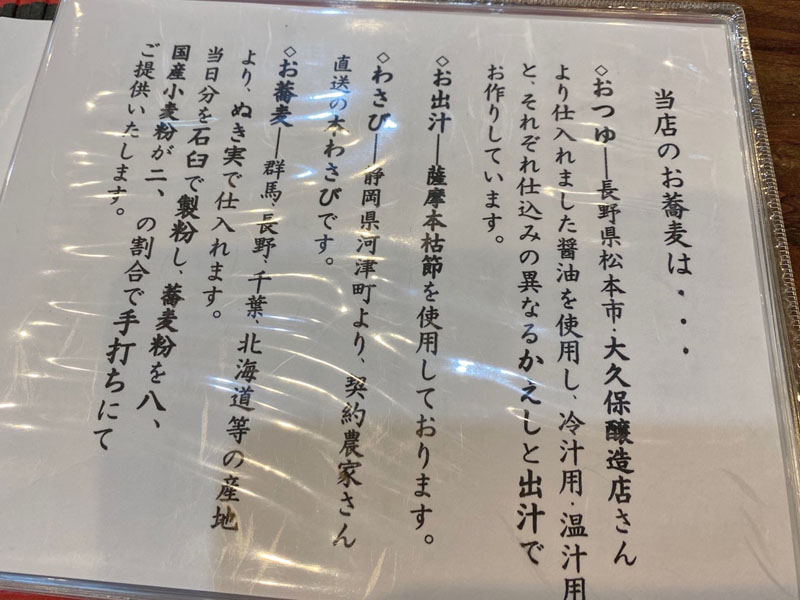 当店のお蕎麦は・・・
◇おつゆ―長野県松本市・大久保醸造店さん
より仕入れました醤油を使用し、冷汁用・温汁用
と、それぞれ仕込みの異なるかえしと出汁で
お作りしています。
◇お出汁―薩摩本枯節を使用しております。
◇わさび―静岡県河津町より、契約農家さん
直送の本わさびです。
◇お蕎麦―群馬、長野、千葉、北海道等の産地
より、ぬき実で仕入れます。
当日分を石臼で製粉し、蕎麦粉を八、
国産小麦粉が二、の割合で手打ちにて
ご提供いたします。